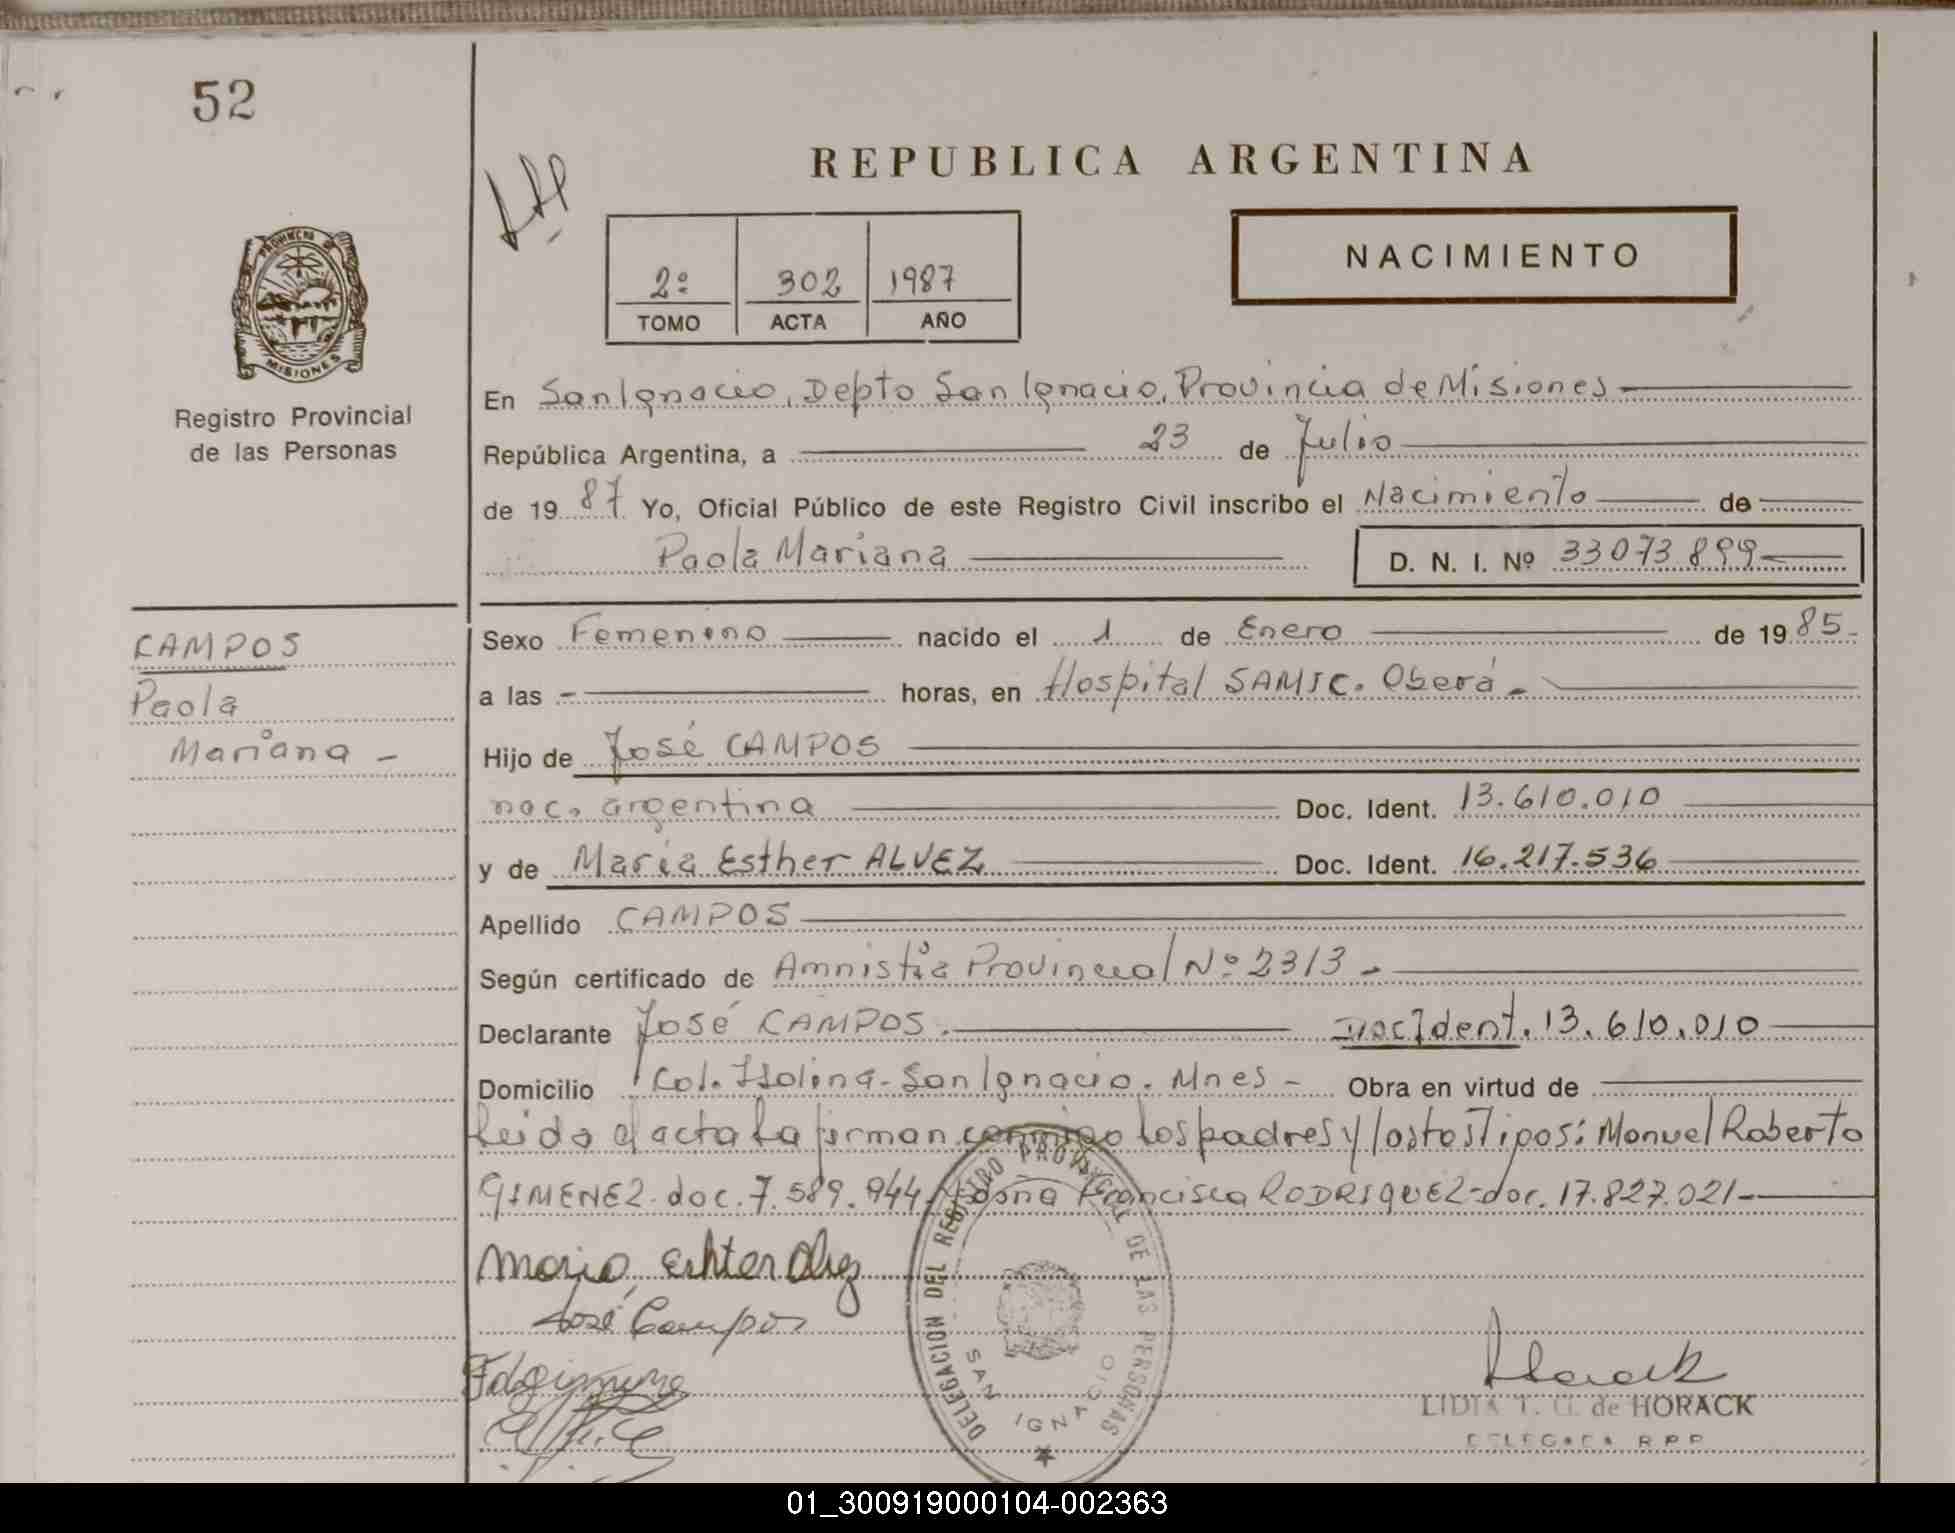 52
REPUBLICA ARGENTINA
NACIMIENTO
2º 302 1987
TOMO ACTA AÑO
PROVINCIA DE
MISIONES
Registro Provincial
de las Personas
En San Ignacio, Depto San Ignacio, Provincia de Misiones
República Argentina, a 23 de Julio
de 19 87 Yo, Oficial Público de este Registro Civil inscribo el Nacimiento de
Paola Mariana D. N. I. Nº 33073.899
CAMPOS
Paola
Mariana -
Sexo Femenino nacido el 1 de Enero de 19 85-
a las - horas, en Hospital SAMIC. Oberá.-
Hijo de José CAMPOS
nac. argentina Doc. Ident. 13.610.010
y de María Esther ALVEZ Doc. Ident. 16.217.536
Apellido CAMPOS
Según certificado de Amnistía Provincial Nº 2313.-
Declarante José CAMPOS. Doc Ident. 13.610.010
Domicilio Col. San Ignacio. Mnes - Obra en virtud de
Leida el acta la firman conmigo los padres y los tos Tipos: Manuel Roberto
GIMENEZ. doc. 7.589.944 y doña Francisca RODRIGUEZ-doc. 17.827.021-
José Campos
DELEGACION DEL REGISTRO PROVINCIAL DE LAS PERSONAS
SAN IGNACIO
LIDIA T. G. de HORACK
DELEGADA R.P.P.
01_300919000104-002363